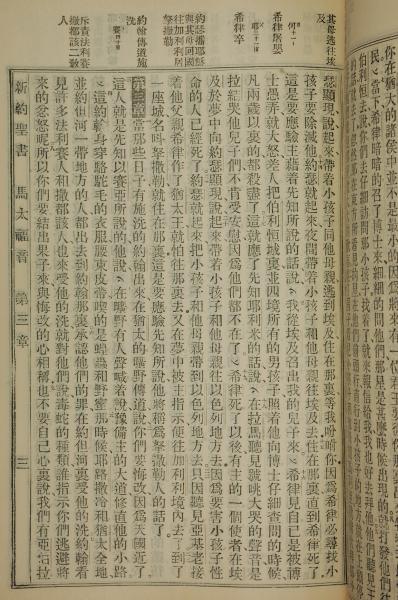 你在猶大的諸侯中並不是最小的因爲將來有一位
民當下希律暗暗的召了博士來細細的問他們那星是甚麼時候出現的就打發他們
伯利恒去說你們去仔細訪問那小孩子找着了就來報信給我我也好去拜他他們聽見王
其母逃往埃及
希律屠嬰
希律卒
約瑟攜耶穌與其母回國往加利利居拿撒勒
約翰傳道施洗
斥責法利賽撒都該二教人
瑟顯現說起來帶着小孩子同他母親逃到埃及住在那裏等我吩咐你因爲希律必尋找小
孩子要除滅他約瑟就起來夜間帶着小孩子和他母親往埃及去住在那裏直到希律死了
這是要應驗主藉着先知所說的話說我從埃及召出我的兒子來希律見自己是被博
士愚弄就大大怒差人把伯利恒城裏並四境所有的男孩子照着他向博士仔細查問的時候
凡兩歲以裏的都殺盡了這就應了先知耶利米的話說在拉馬聽見號咷大哭的聲音是
拉結哭他兒子們不肯受安慰因爲他們都不在了希律死了以後有主的一個使者在埃
及於夢中向約瑟顯現說起來帶着小孩子和他母親往以色列地方去因爲要害小孩子性
命的人已經死了約瑟就起來把小孩子和他母親帶到以色列地方去只因聽見亞基老接
着他父親希律作了猶太王就怕往那裏去又在夢中被主指示便往加利利境內去了到了
一座城名叫拿撒勒就住在那裏這是要應驗先知所說他將稱爲拿撒勒人的話了
第三章當那些日子有施洗的約翰出來在猶太的曠野傳道說你們要悔改因爲天國近了
這人就是先知以賽亞所說的他說在曠野有人聲喊着說豫備主的大道修直他的小路
這約翰身穿駱駝毛的衣服腰束皮帶喫的是蝗蟲和野蜜那時候耶路撒冷和猶太全地
並約但河一帶地方的人都出去到約翰那裏承認他們的罪在約但河裏受他的洗約翰看
見許多法利賽人和撒都該人也來受他的洗就對他們說毒蛇的種類誰指示你們逃避將
來的忿怒呢所以你們要結出果子來與悔改的心相稱也不要自己心裏說我們有亞伯拉
新約聖書 馬太福音 第三章 三